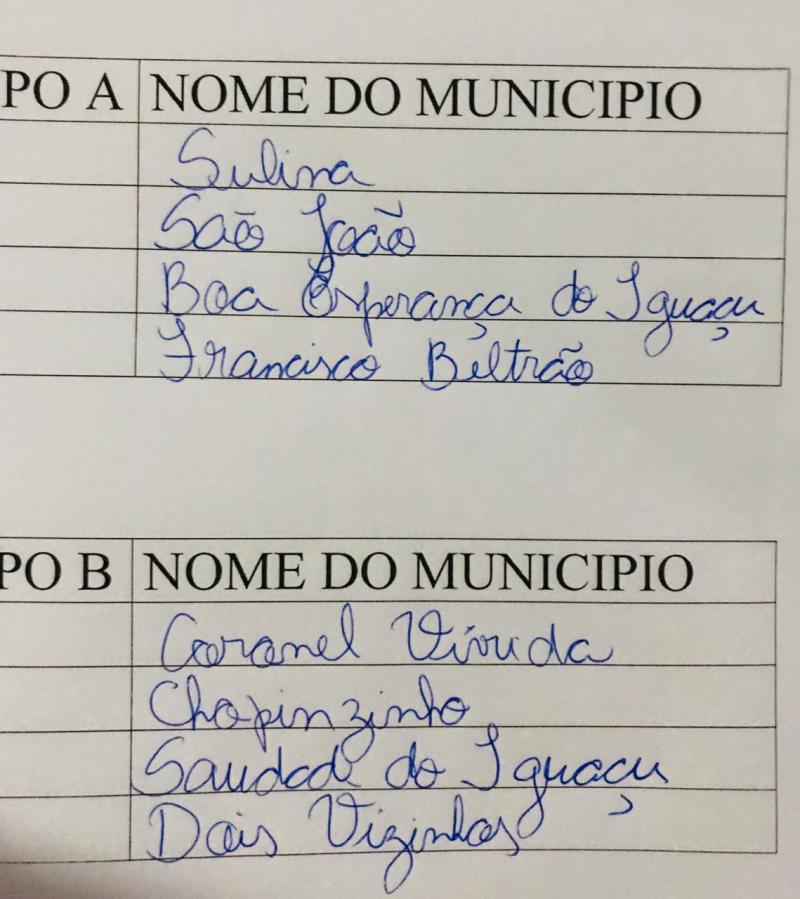 PO A NOME DO MUNICIPIO
Sulina
São João
Boa Esperança do Iguaçu
Francisco Beltrão
PO B NOME DO MUNICIPIO
Coronel Vivida
Chopinzinho
Saudade do Iguaçu
Dois Vizinhos